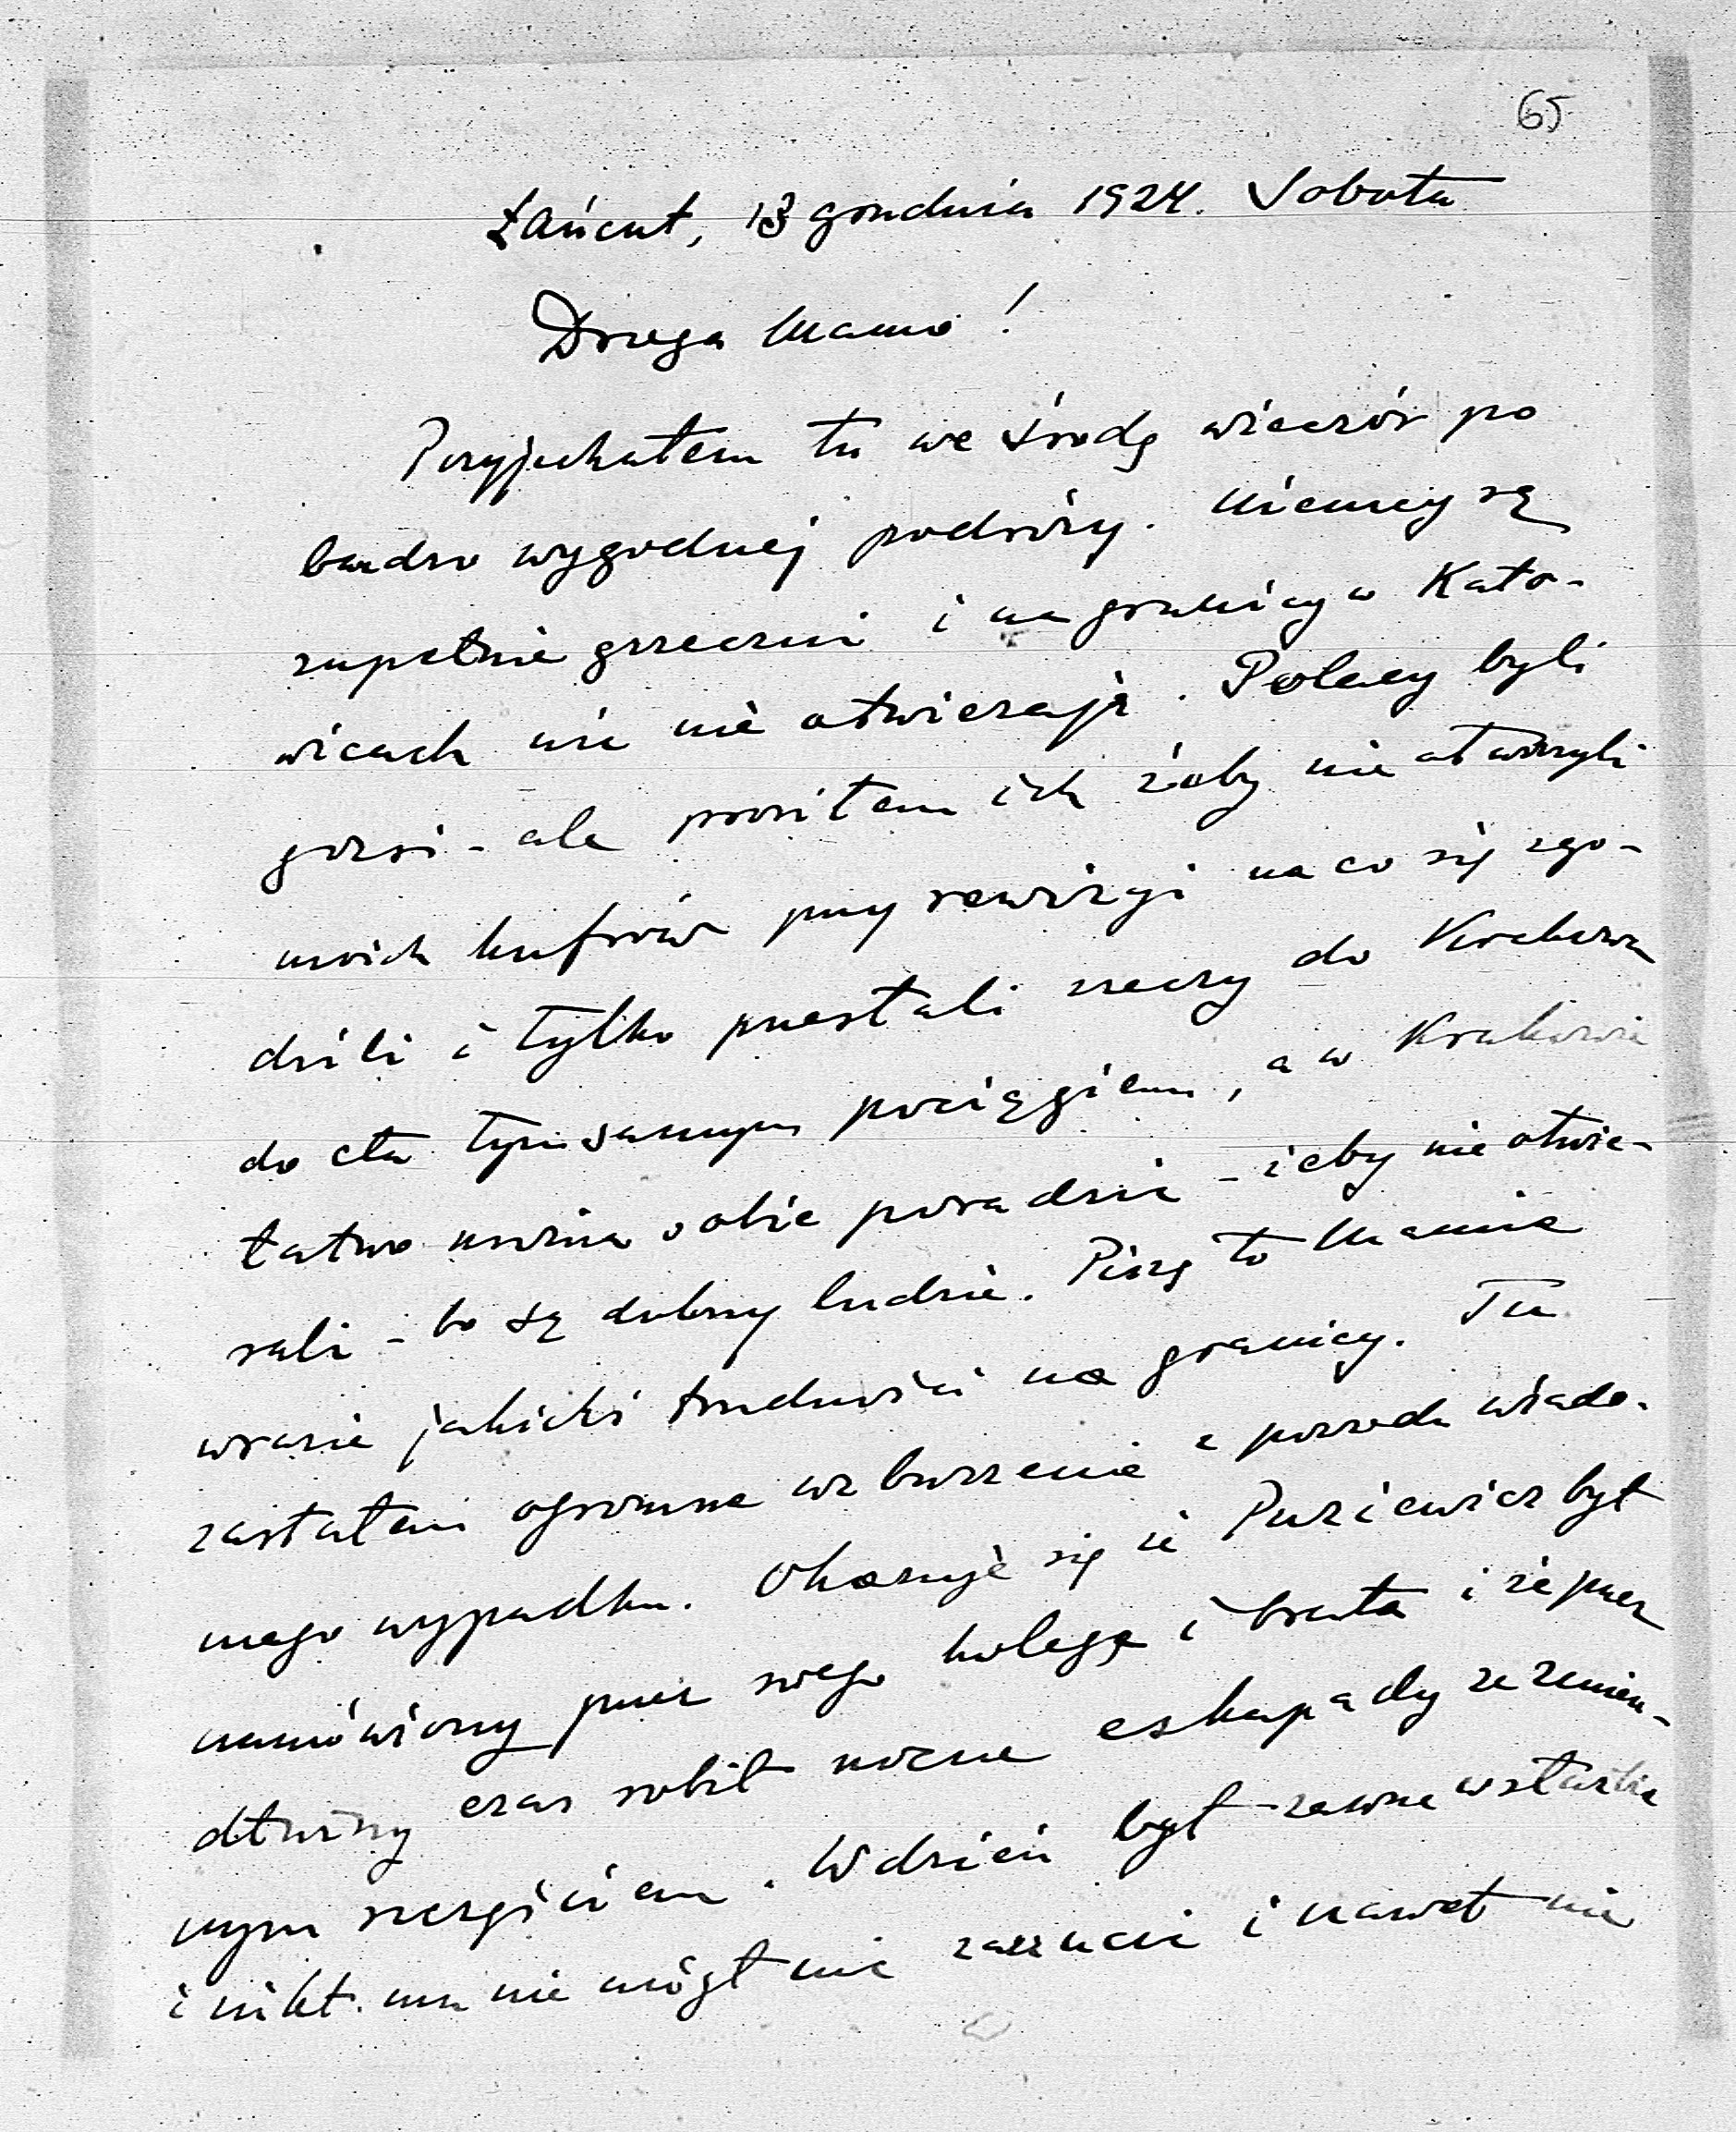 65
Łańcut, 13 grudnia 1924. Sobota
Droga Mamo!
Przyjechałem tu we środę wieczór po
bardzo wygodnej podróży. Niemcy są
zupełnie grzeczni i na granicy w Kato-
wicach nic nie otwierają. Polacy byli
gorsi - ale prosiłem ich żeby nie otworzyli
moich kufrów przy rewizyi na co się zgo-
dzili i tylko przesłali rzeczy do Krakowa
do cła tym samym pociągiem, a w Krakowie
łatwo można sobie poradzić - żeby nie otwie-
rali - bo są dobrzy ludzie. Piszę to Mamie
wrazie jakichś trudności na granicy. Tu
zastałem ogromne wzburzenie z powodu wiado-
mego wypadku. Okazuje się że Puziewicz był
namówiony przez swego kolegę i brata i że przez
dłuższy czas robił nocne eskapady ze zmien-
nym szczęściem. W dzień był zawsze w służbie
i nikt mu nie mógł nic zarzucić i nawet nie